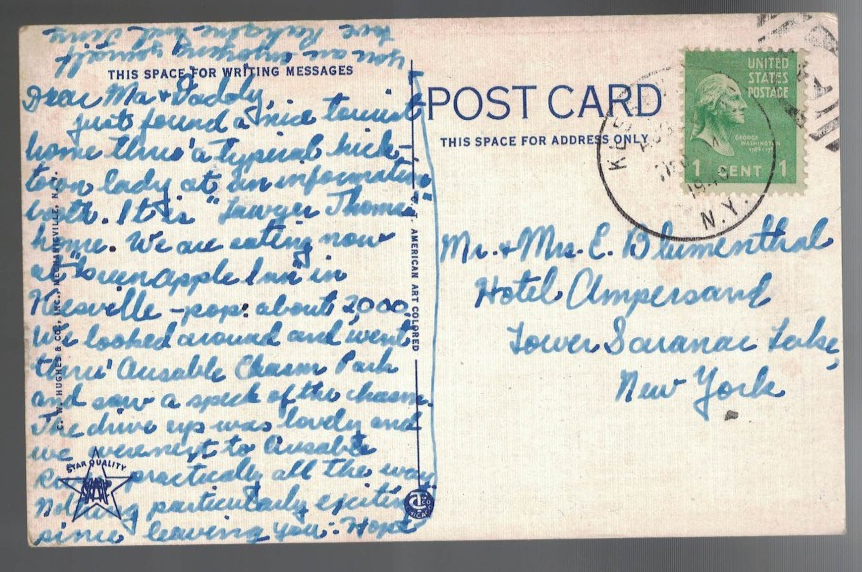 THIS SPACE FOR WRITING MESSAGES
Dear Ma & Daddy,
Just found a nice tourist
home thru' a typical hick-
town lady at an information
booth. It is "Lawyer Thomas"
home. We are eating now
at "Green Apple Inn" in
Keesville - pop: about 2,000.
We looked around and went
thru' Ausable Chasm Park
and saw a speck of the chasm.
The drive up was lovely and
we were next to Ausable
practically all the way.
Nothing particularly exciting
since leaving you. Hope
you are enjoying yourself
POST CARD
THIS SPACE FOR ADDRESS ONLY
UNITED
STATES
POSTAGE
GEORGE
WASHINGTON
1 CENT 1
N.Y.
Mr. & Mrs. E. Blumenthal
Hotel Ampersand
Lower Saranac Lake,
New York
C. T. AMERICAN ART COLORED
STAR QUALITY